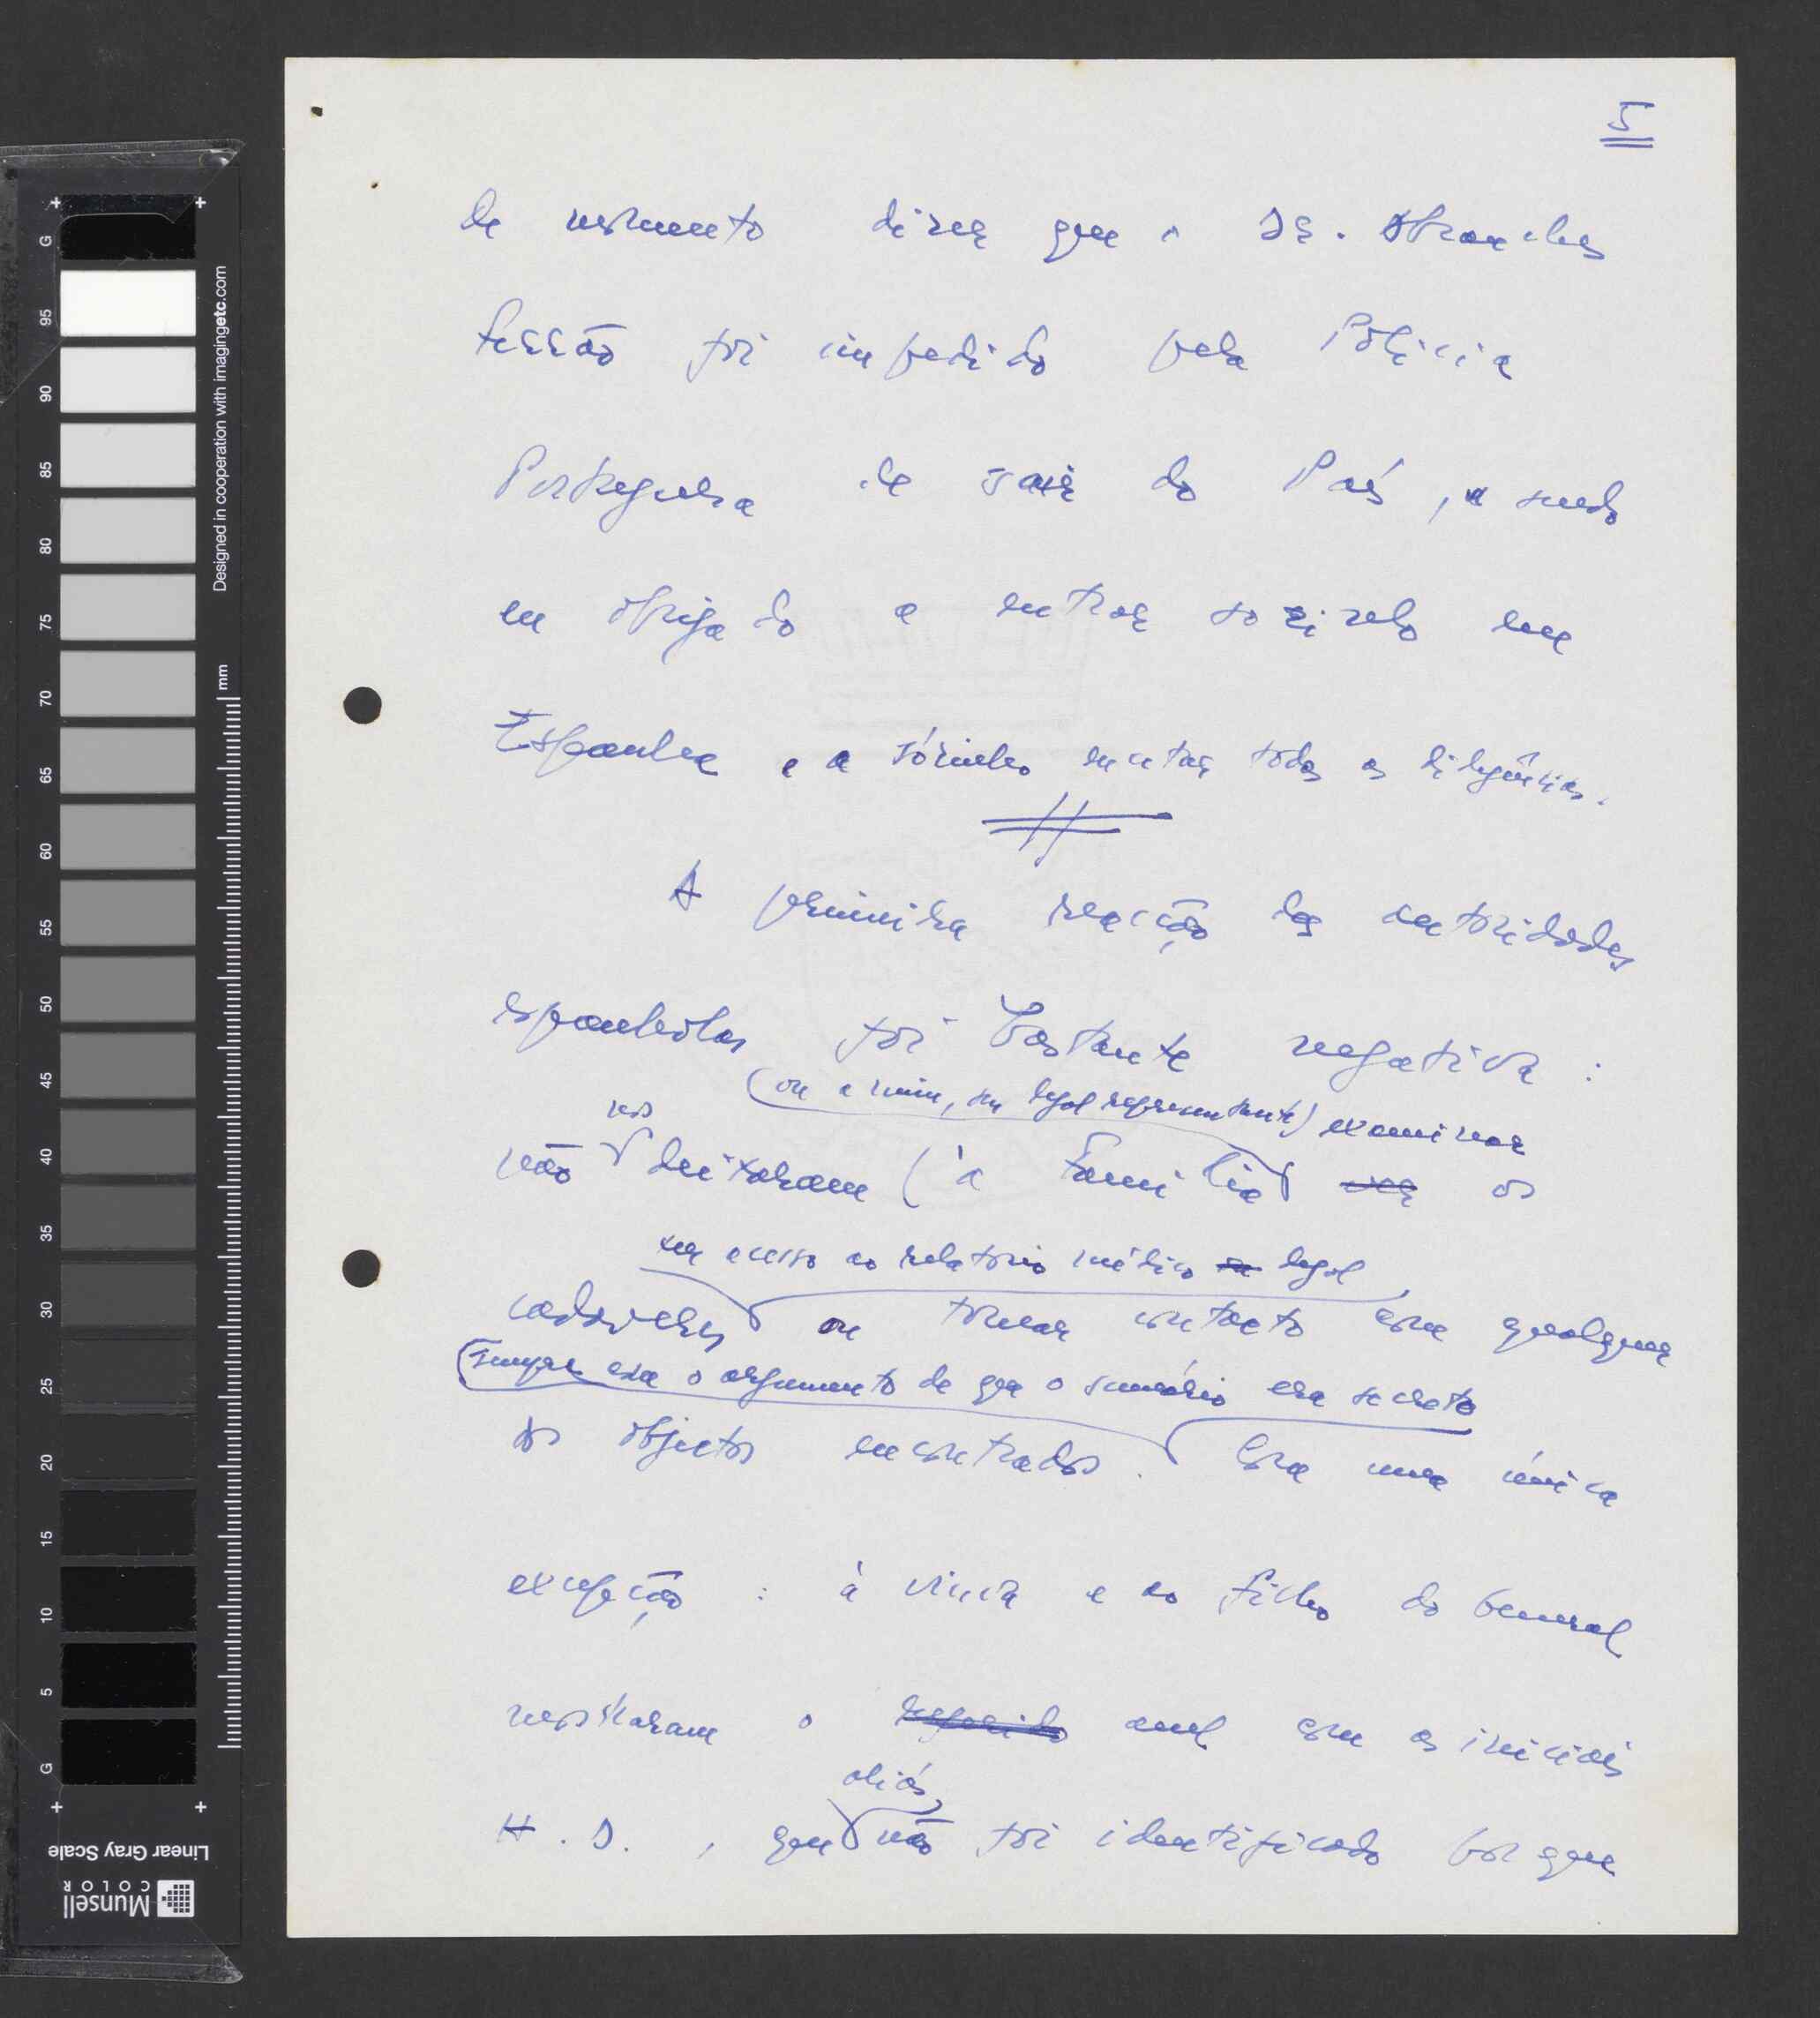 5
de momento direi que o Dr. Abranches
Ferrão foi impedido pela Polícia
Portuguesa de sair do País, sendo
eu obrigado a entrar sozinho em
Espanha e a sózinho encetar todas as diligências.
A primeira reacção das autoridades
espanholas foi bastante negativa :
(ou a mim, seu legal representante) examinar
nos
não deixaram (à Família ver os
ter acesso ao relatório médico legal,
cadáveres ou tomar contacto com qualquer
Sempre era o argumento de que o sumário era secreto
dos objectos encontrados. Com uma única
excepção : à viúva e ao filho do General
mostraram o referido anel com as iniciais
aliás,
H. D. , que não foi identificado porque
Designed in cooperation with imagingetc.com
mm
G
95
90
85
80
75
70
65
60
55
50
45
40
35
30
25
20
15
10
5
G
Linear Gray Scale
Munsell
COLOR